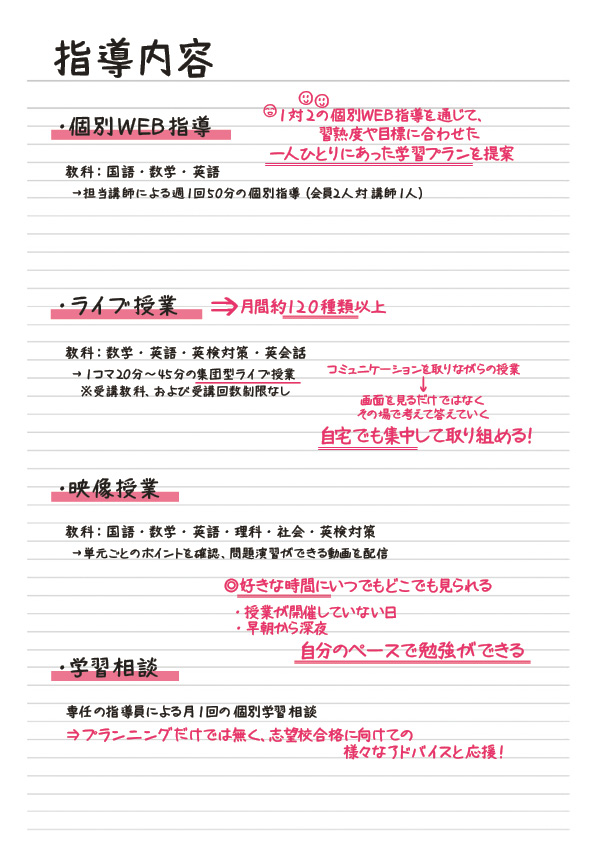 指導内容
・個別WEB指導
1対2の個別WEB指導を通じて、
習熟度や目標に合わせた
一人ひとりにあった学習プランを提案
教科：国語・数学・英語
→担当講師による週1回50分の個別指導（会員2人対講師1人）
・ライブ授業
⇒月間約120種類以上
教科：数学・英語・英検対策・英会話
→1コマ20分～45分の集団型ライブ授業
※受講教科、および受講回数制限なし
コミュニケーションを取りながらの授業
↓
画面を見るだけではなく
その場で考えて答えていく
自宅でも集中して取り組める！
・映像授業
教科：国語・数学・英語・理科・社会・英検対策
→単元ごとのポイントを確認、問題演習ができる動画を配信
◎好きな時間にいつでもどこでも見られる
・授業が開催していない日
・早朝から深夜
自分のペースで勉強ができる
・学習相談
専任の指導員による月1回の個別学習相談
⇒プランニングだけでは無く、志望校合格に向けての
様々なアドバイスと応援！